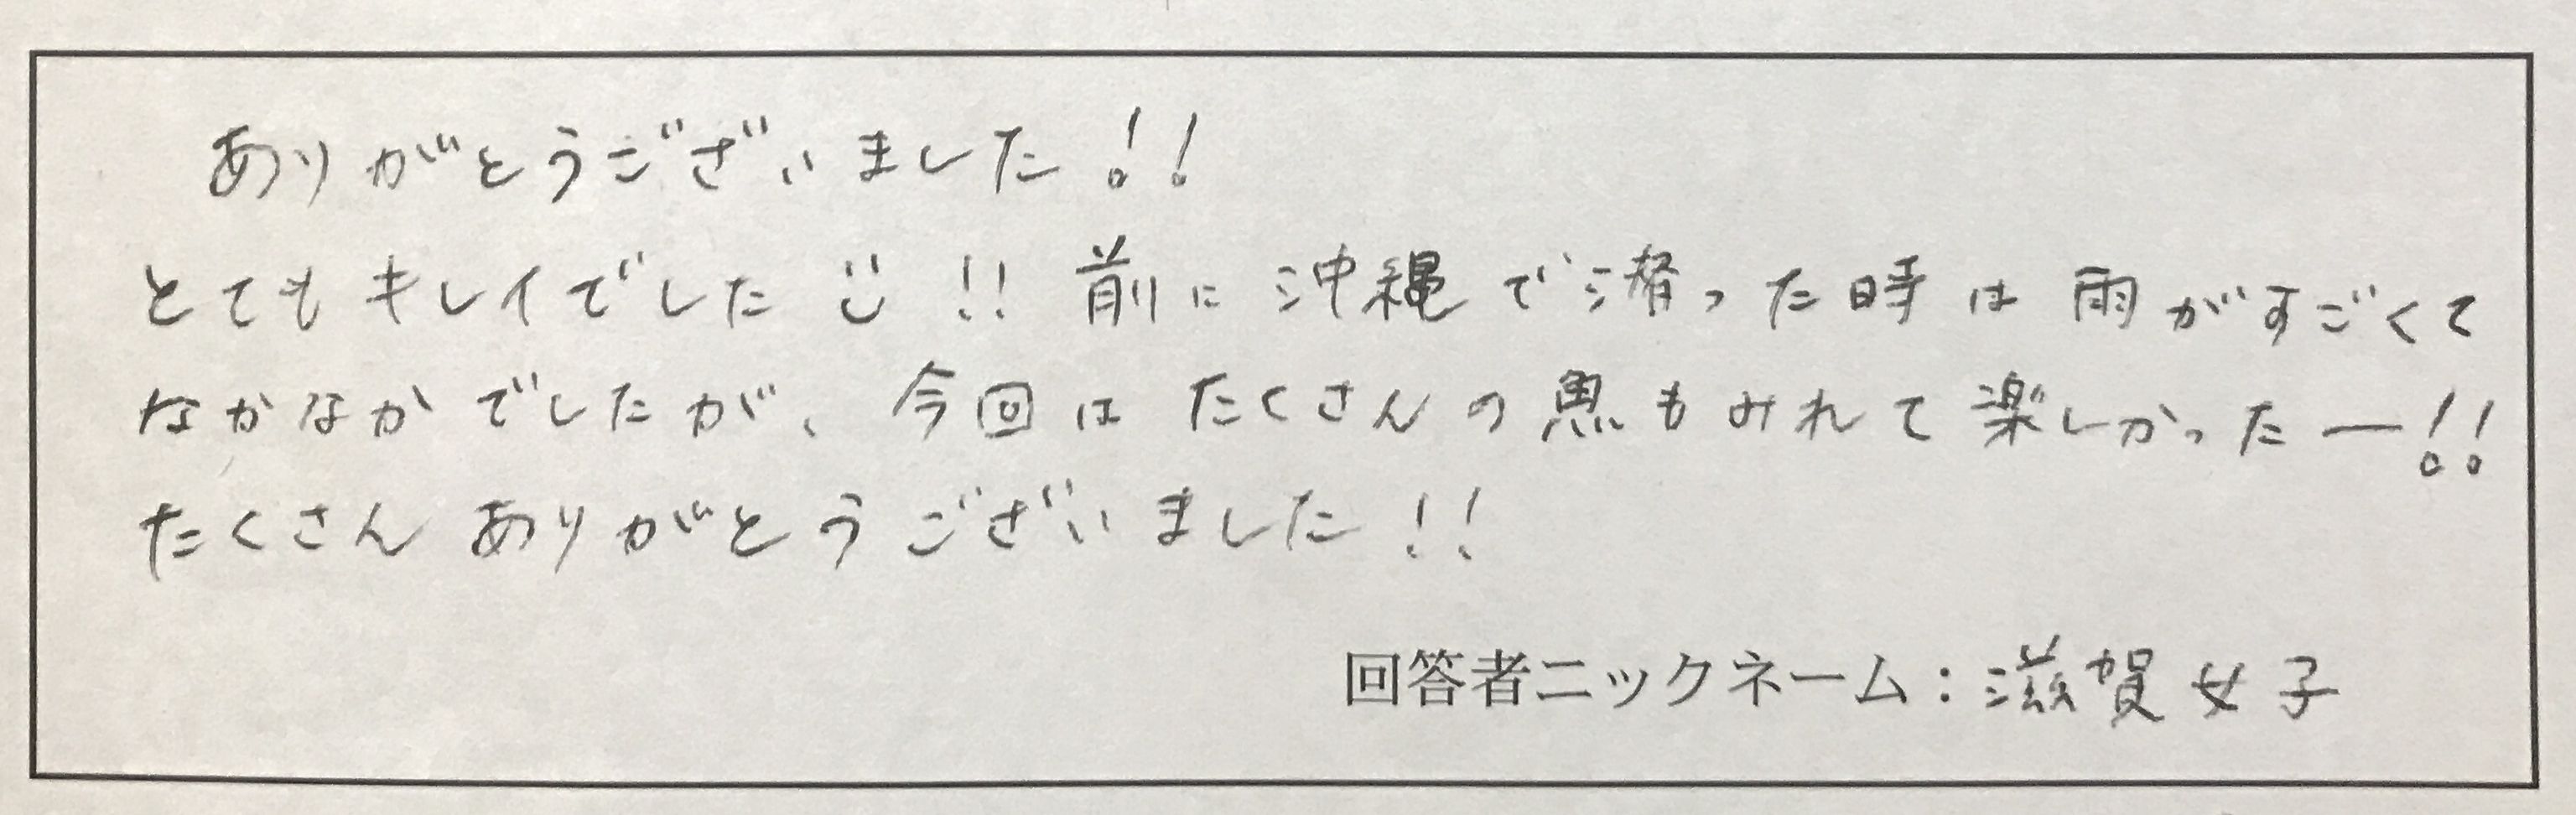 ありがとうございました!!
とてもキレイでした!! 前に沖縄で潜った時は雨がすごくて
なかなかでしたが、今回はたくさんの魚もみれて楽しかったー!!
たくさんありがとうございました!!
回答者ニックネーム:滋賀女子